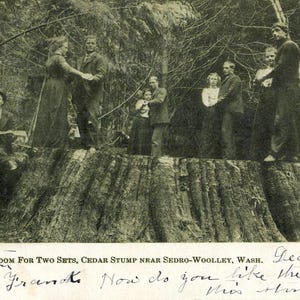 OOM FOR TWO SETS, CEDAR STUMP NEAR SEDRO-WOOLLEY, WASH.
Frank How do you like the
this